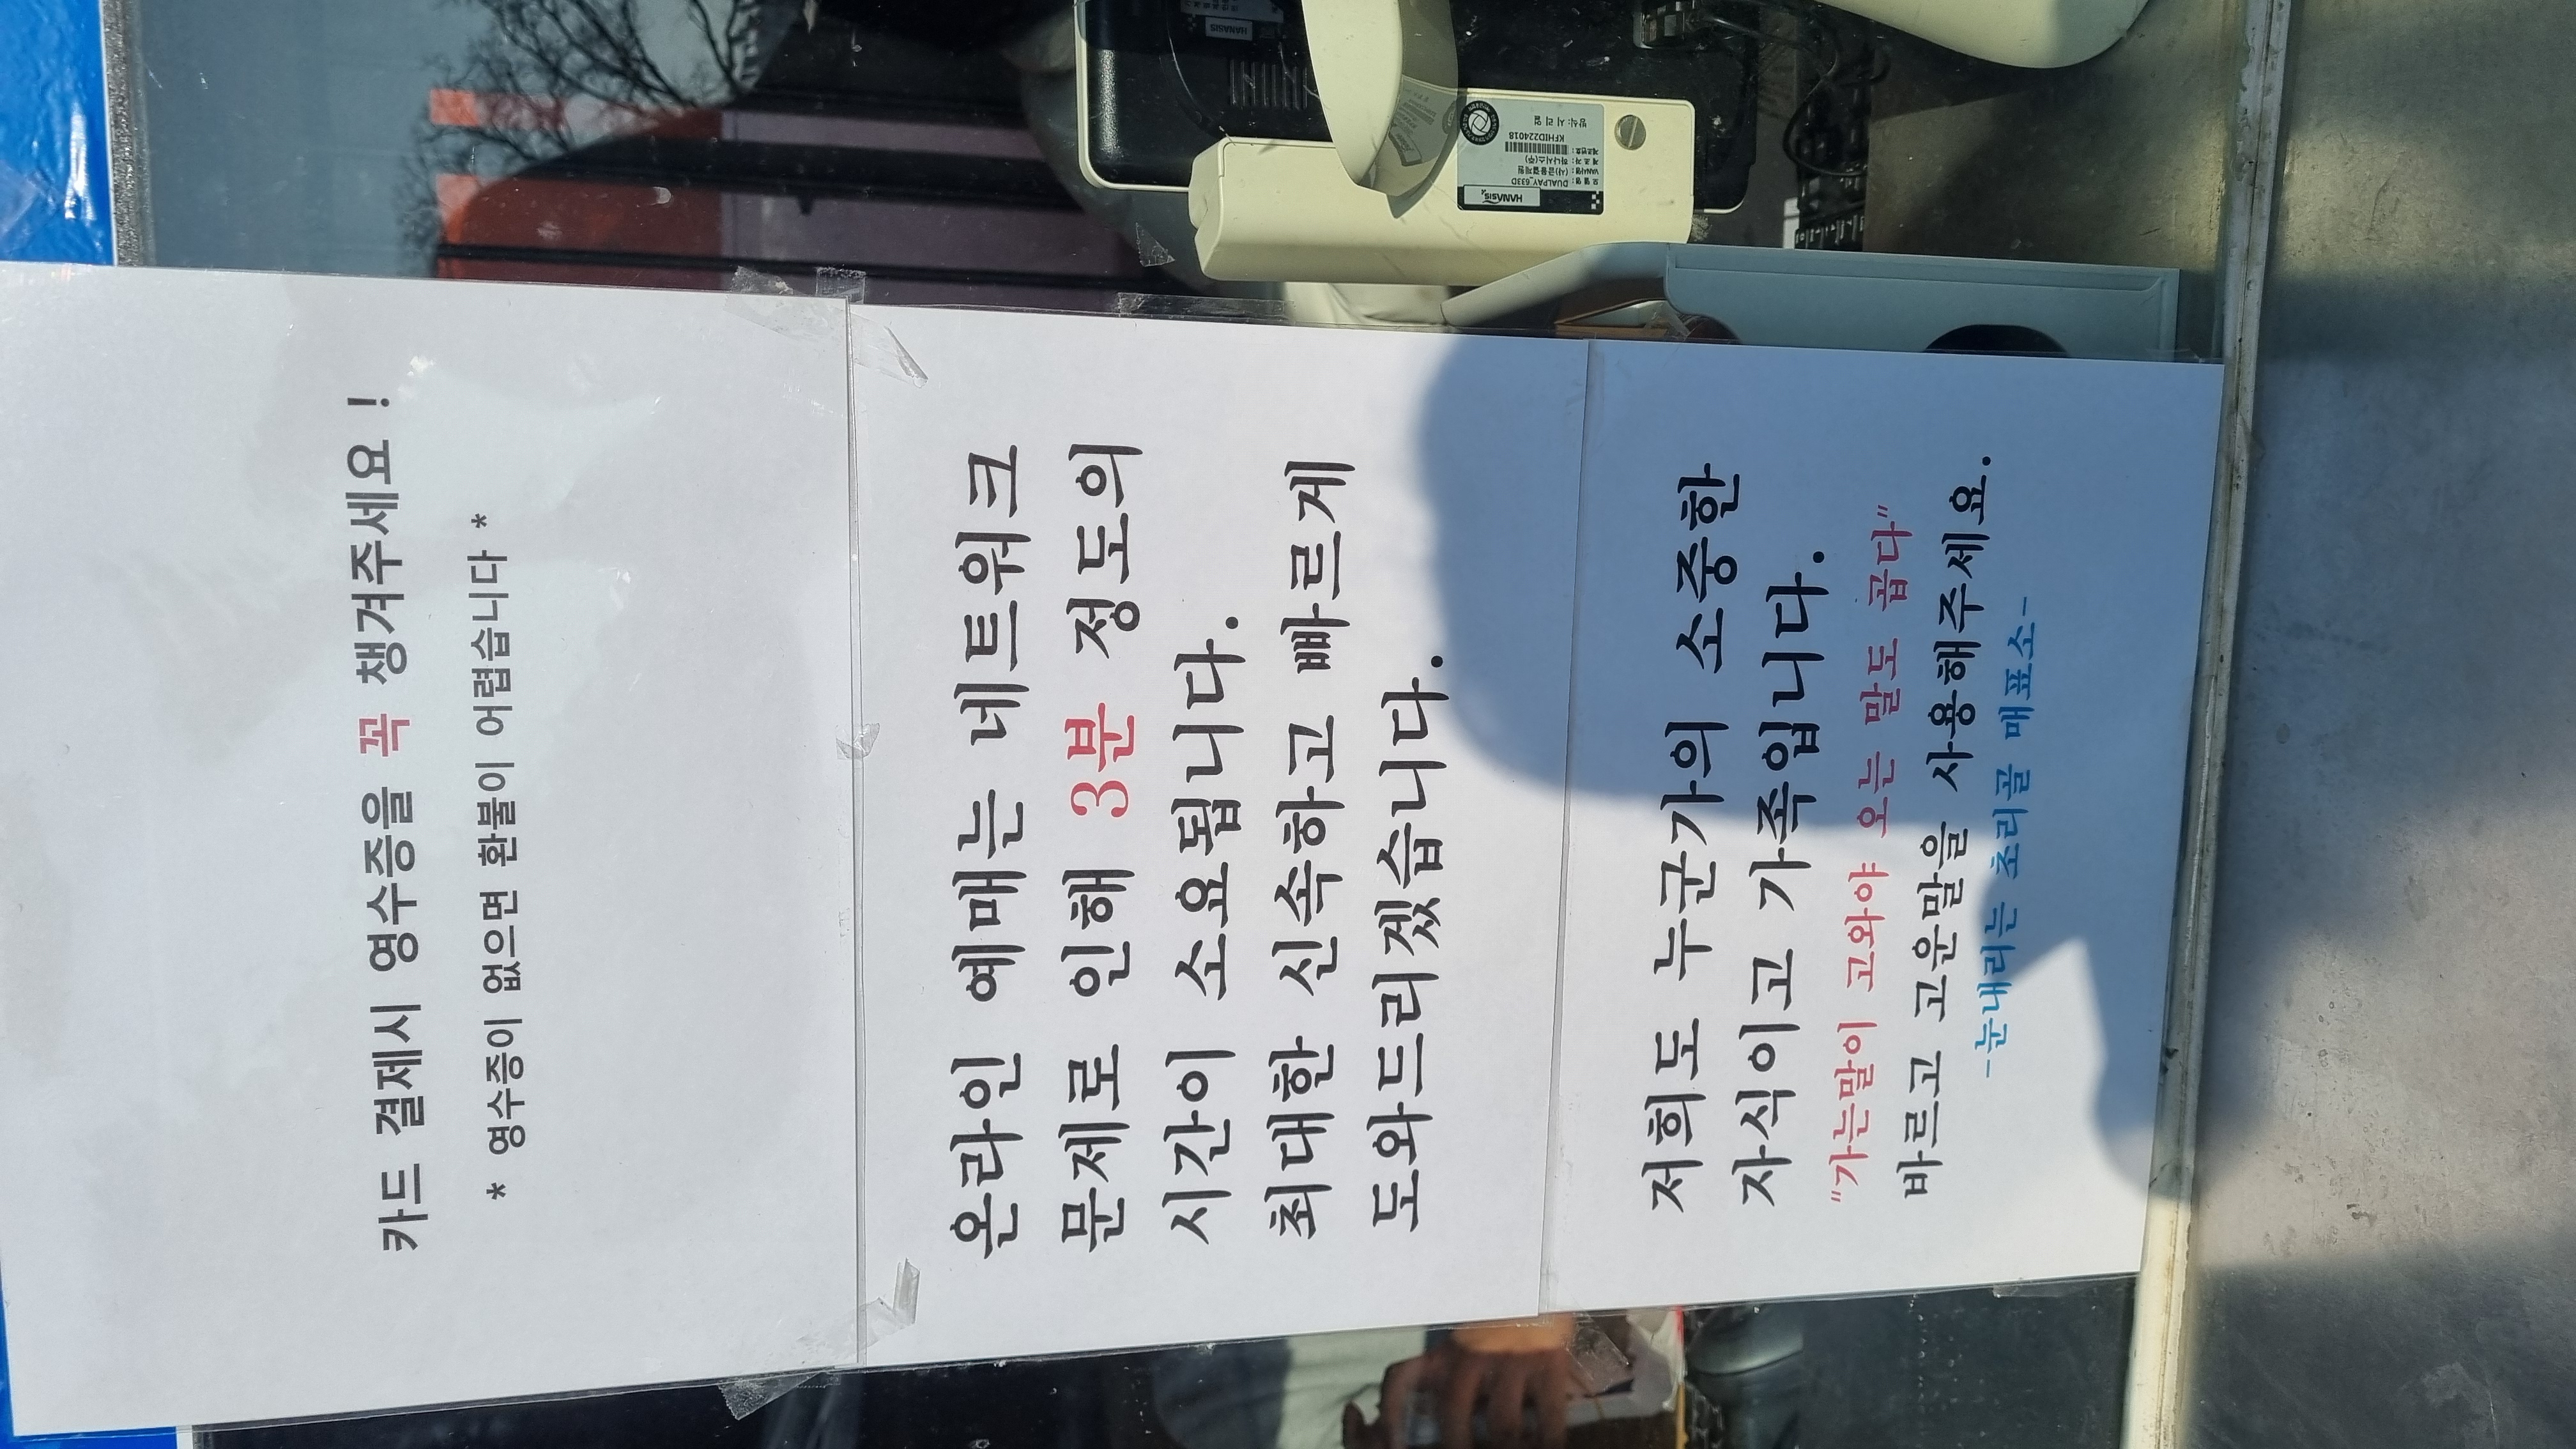 카드 결제시 영수증을 꼭 챙겨주세요 !
* 영수증이 없으면 환불이 어렵습니다 *
온라인 예매는 네트워크
문제로 인해 3분 정도의
시간이 소요됩니다.
최대한 신속하고 빠르게
도와드리겠습니다.
저희도 누군가의 소중한
자식이고 가족입니다.
"가는말이 고와야 오는 말도 곱다"
바르고 고운말을 사용해주세요.
-눈내리는 초리골 매표소-
HANASIS
HANAsis
모 델 명 : DUALPAY_633D
VAN사명 : (사)금융결제원
제 조 자 : 하나시스(주)
제조번호 :
KFHID224018
방식: 시 리 얼